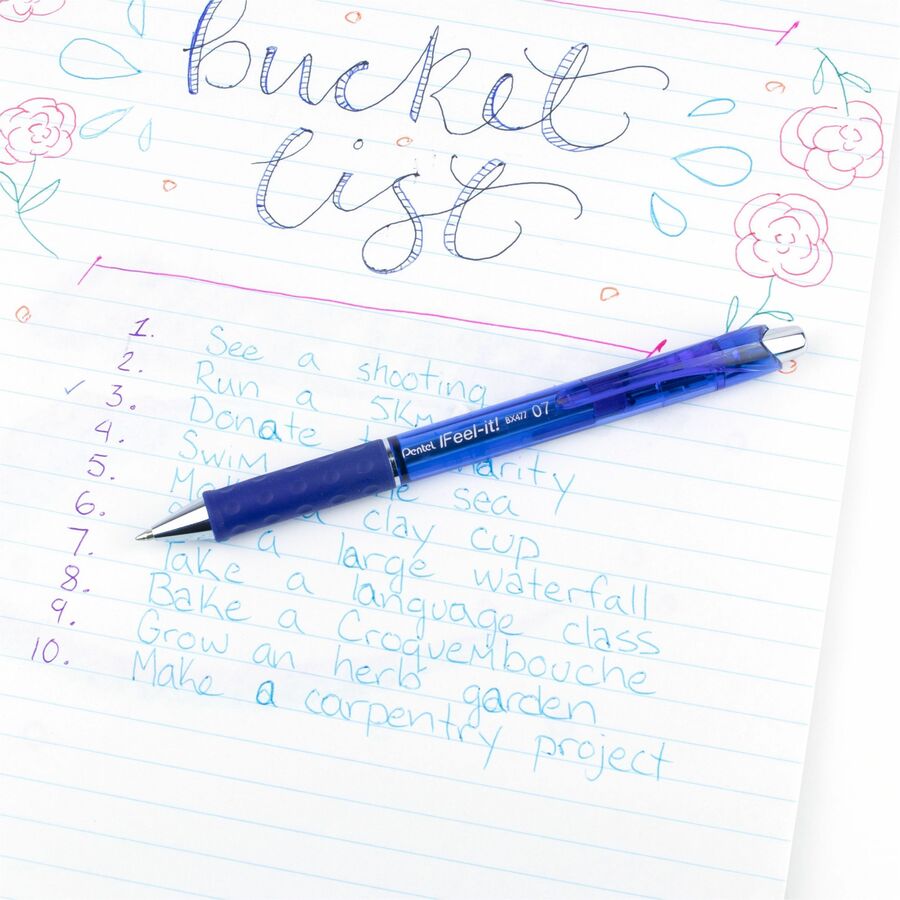 bucket
list
1. See a shooting
2. Run a 5Km
✓ 3. Donate charity
4. Swim sea
5. clay cup
6. a large waterfall
7. Take a language class
8. Bake a Croquembouche
9. Grow an herb garden
10. Make a carpentry project
Pentel Feel-it! BX477 07